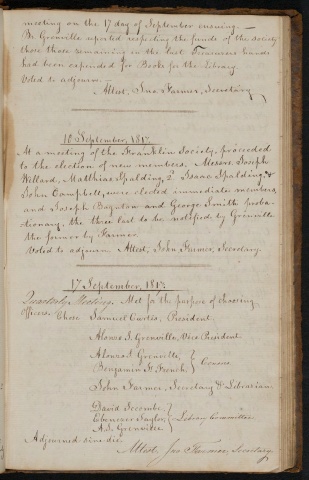 meeting on the 17 day of September ensuing. —
Br Grenville reported respecting the funds of the society
those remaining in the last Treasurers hands
had been expended for Books for the Library.
Voted to adjourn. —
Attest, Jno Farmer, Secretary
10 September, 1817.
At a meeting of the Franklin Society, proceeded
to the election of new members. Messrs. Joseph
Willard, Matthias Spalding, 2d Isaac Spalding, &
John Campbell, were elected immediate members,
and Joseph Boynton and George Smith proba-
tionary, the three last to be notified by Grenville
the former by Farmer.
Voted to adjourn. Attest, John Farmer, Secretary.
17 September, 1817.
Quarterly Meeting. Met for the purpose of choosing
officers. Chose Samuel Curtis, President.
Alonzo S. Grenville, Vice President
Alonzo S. Grenville,
Benjamin F. French, } Censors
John Farmer, Secretary & Librarian
David Secombe,
Ebenezer Taylor, } Library Committee
A. S. Grenville
Adjourned sine die.
Attest Jno Farmer, Secretary